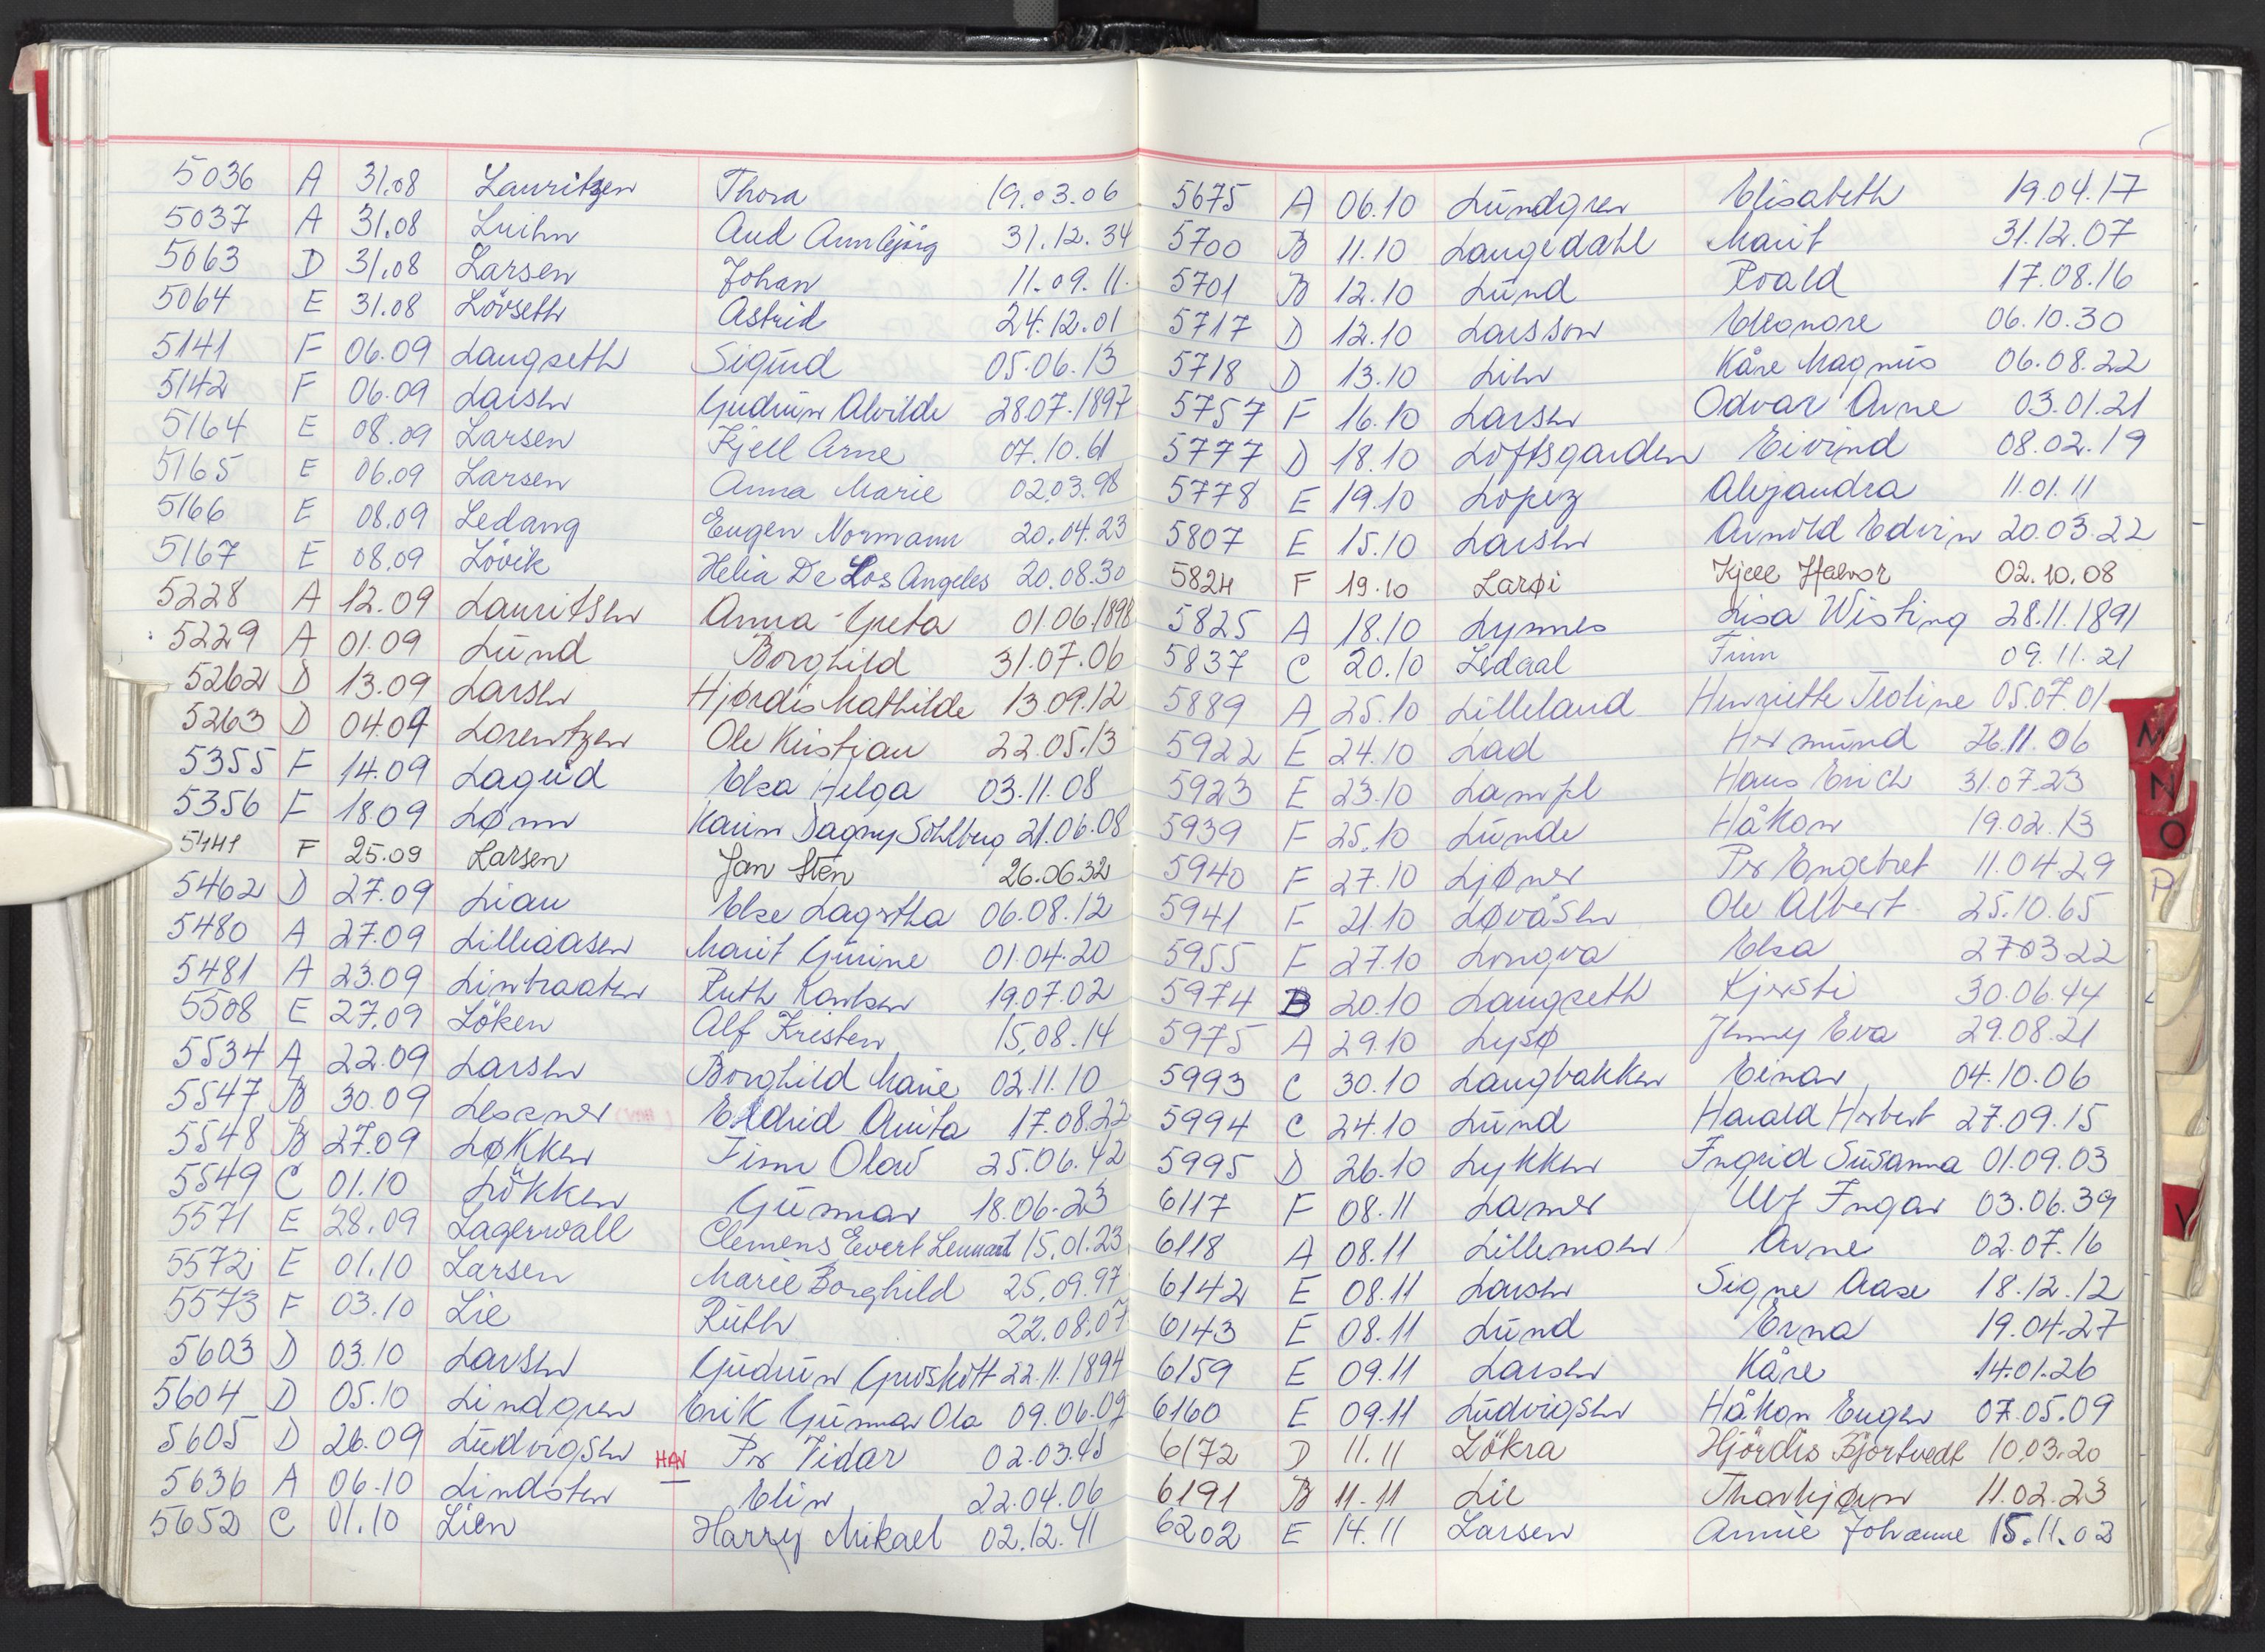 5036 A 31.08 Lauritzen Thora 19.03.06
5037 A 31.08 Luihn Aud Annbjörg 31.12.34
5063 D 31.08 Larsen Johan 11.09.11.
5064 E 31.08 Lövseth Astrid 24.12.01
5141 F 06.09 Langseth Sigurd 05.06.13
5142 F 06.09 Larsen Gudrun Alvilde 28.07.1897
5164 E 08.09 Larsen Kjell Arne 07.10.61
5165 E 06.09 Larsen Anna Marie 02.03.98
5166 E 08.09 Ledang Eugen Normann 20.04.23
5167 E 08.09 Lövik Helia De Los Angeles 20.08.30
5228 A 12.09 Lauritsen Anna-Greta 01.06.1898
5229 A 01.09 Lund Borghild 31.07.06
5262 D 13.09 Larsen Hjørdis Mathilde 13.09.12
5263 D 04.09 Lorentzen Ole Kristian 22.05.13
5355 F 14.09 Lagud Elsa Helga 03.11.08
5356 F 18.09 Lønn Karin Dagny Sohlberg 21.06.08
5441 F 25.09 Larsen Jan Sten 26.06.32
5462 D 27.09 Lian Else Lagertha 06.08.12
5480 A 27.09 Lilleaasen Marit Gurine 01.04.20
5481 A 23.09 Lintraaten Ruth Karlsen 19.07.02
5508 E 27.09 Löken Alf Kristen 15.08.14
5534 A 22.09 Larsen Borghild Marie 02.11.10
5547 B 30.09 Lexner Eldrid Anita 17.08.22
5548 B 27.09 Løkken Finn Olav 25.06.42
5549 C 01.10 Lökken Gunnar 18.06.23
5571 E 28.09 Lagerwall Clemens Evert Lennart 15.01.23
5572 E 01.10 Larsen Marie Borghild 25.09.97
5573 F 03.10 Lie Ruth 22.08.07
5603 D 03.10 Larsen Gudrun 22.11.1894
5604 D 05.10 Lindgren Erik Gunnar Ola 09.06.09
5605 D 26.09 Ludvigsen HAN Per Vidar 02.03.45
5636 A 06.10 Lindsten Elin 22.04.06
5652 C 01.10 Lien Harry Mikael 02.12.41
5675 A 06.10 Lundgren Elisabeth 19.04.17
5700 B 11.10 Langedahl Marit 31.12.07
5701 B 12.10 Lund Roald 17.08.16
5717 D 12.10 Larsson Eleonore 06.10.30
5718 D 13.10 Lien Kåre Magnus 06.08.22
5757 F 16.10 Larsen Odvar Arne 03.01.21
5777 D 18.10 Loftsgarden Eivind 08.02.19
5778 E 19.10 Lopez Alejandra 11.01.11
5807 E 15.10 Larsen Arnold Edvin 20.03.22
5824 F 19.10 Larøi Kjell Halvor 02.10.08
5825 A 18.10 Lynnes Lisa Wisting 28.11.1891
5837 C 20.10 Ledaal Finn 09.11.21
5889 A 25.10 Lilleland Henriette Teoline 05.07.01
5922 E 24.10 Lad Hermund 26.11.06
5923 E 23.10 Lampl Hans Erich 31.07.23
5939 F 25.10 Lunde Håkon 19.02.13
5940 F 27.10 Ljøner Per Engebret 11.04.29
5941 F 21.10 Løvåsen Ole Albert 25.10.65
5955 F 27.10 Longva Elsa 27.03.22
5974 B 20.10 Langseth Kjersti 30.06.44
5975 A 29.10 Lysø Jenny Eva 29.08.21
5993 C 30.10 Langbakken Einar 04.10.06
5994 C 24.10 Lund Harald Herbert 27.09.15
5995 D 26.10 Lykken Ingrid Susanna 01.09.03
6117 F 08.11 Lamer Ulf Ingar 03.06.39
6118 A 08.11 Lillemoen Arne 02.07.16
6142 E 08.11 Larsen Signe Aase 18.12.12
6143 E 08.11 Lund Erna 19.04.27
6159 E 09.11 Larsen Kåre 14.01.26
6160 E 09.11 Ludvigsen Håkon Eugen 07.05.09
6172 D 11.11 Lökra Hjördis Bjortvedt 10.03.20
6191 B 11.11 Lie Thorbjørn 11.02.23
6202 E 14.11 Larsen Annie Johanne 15.11.02
M
N
O
P
V